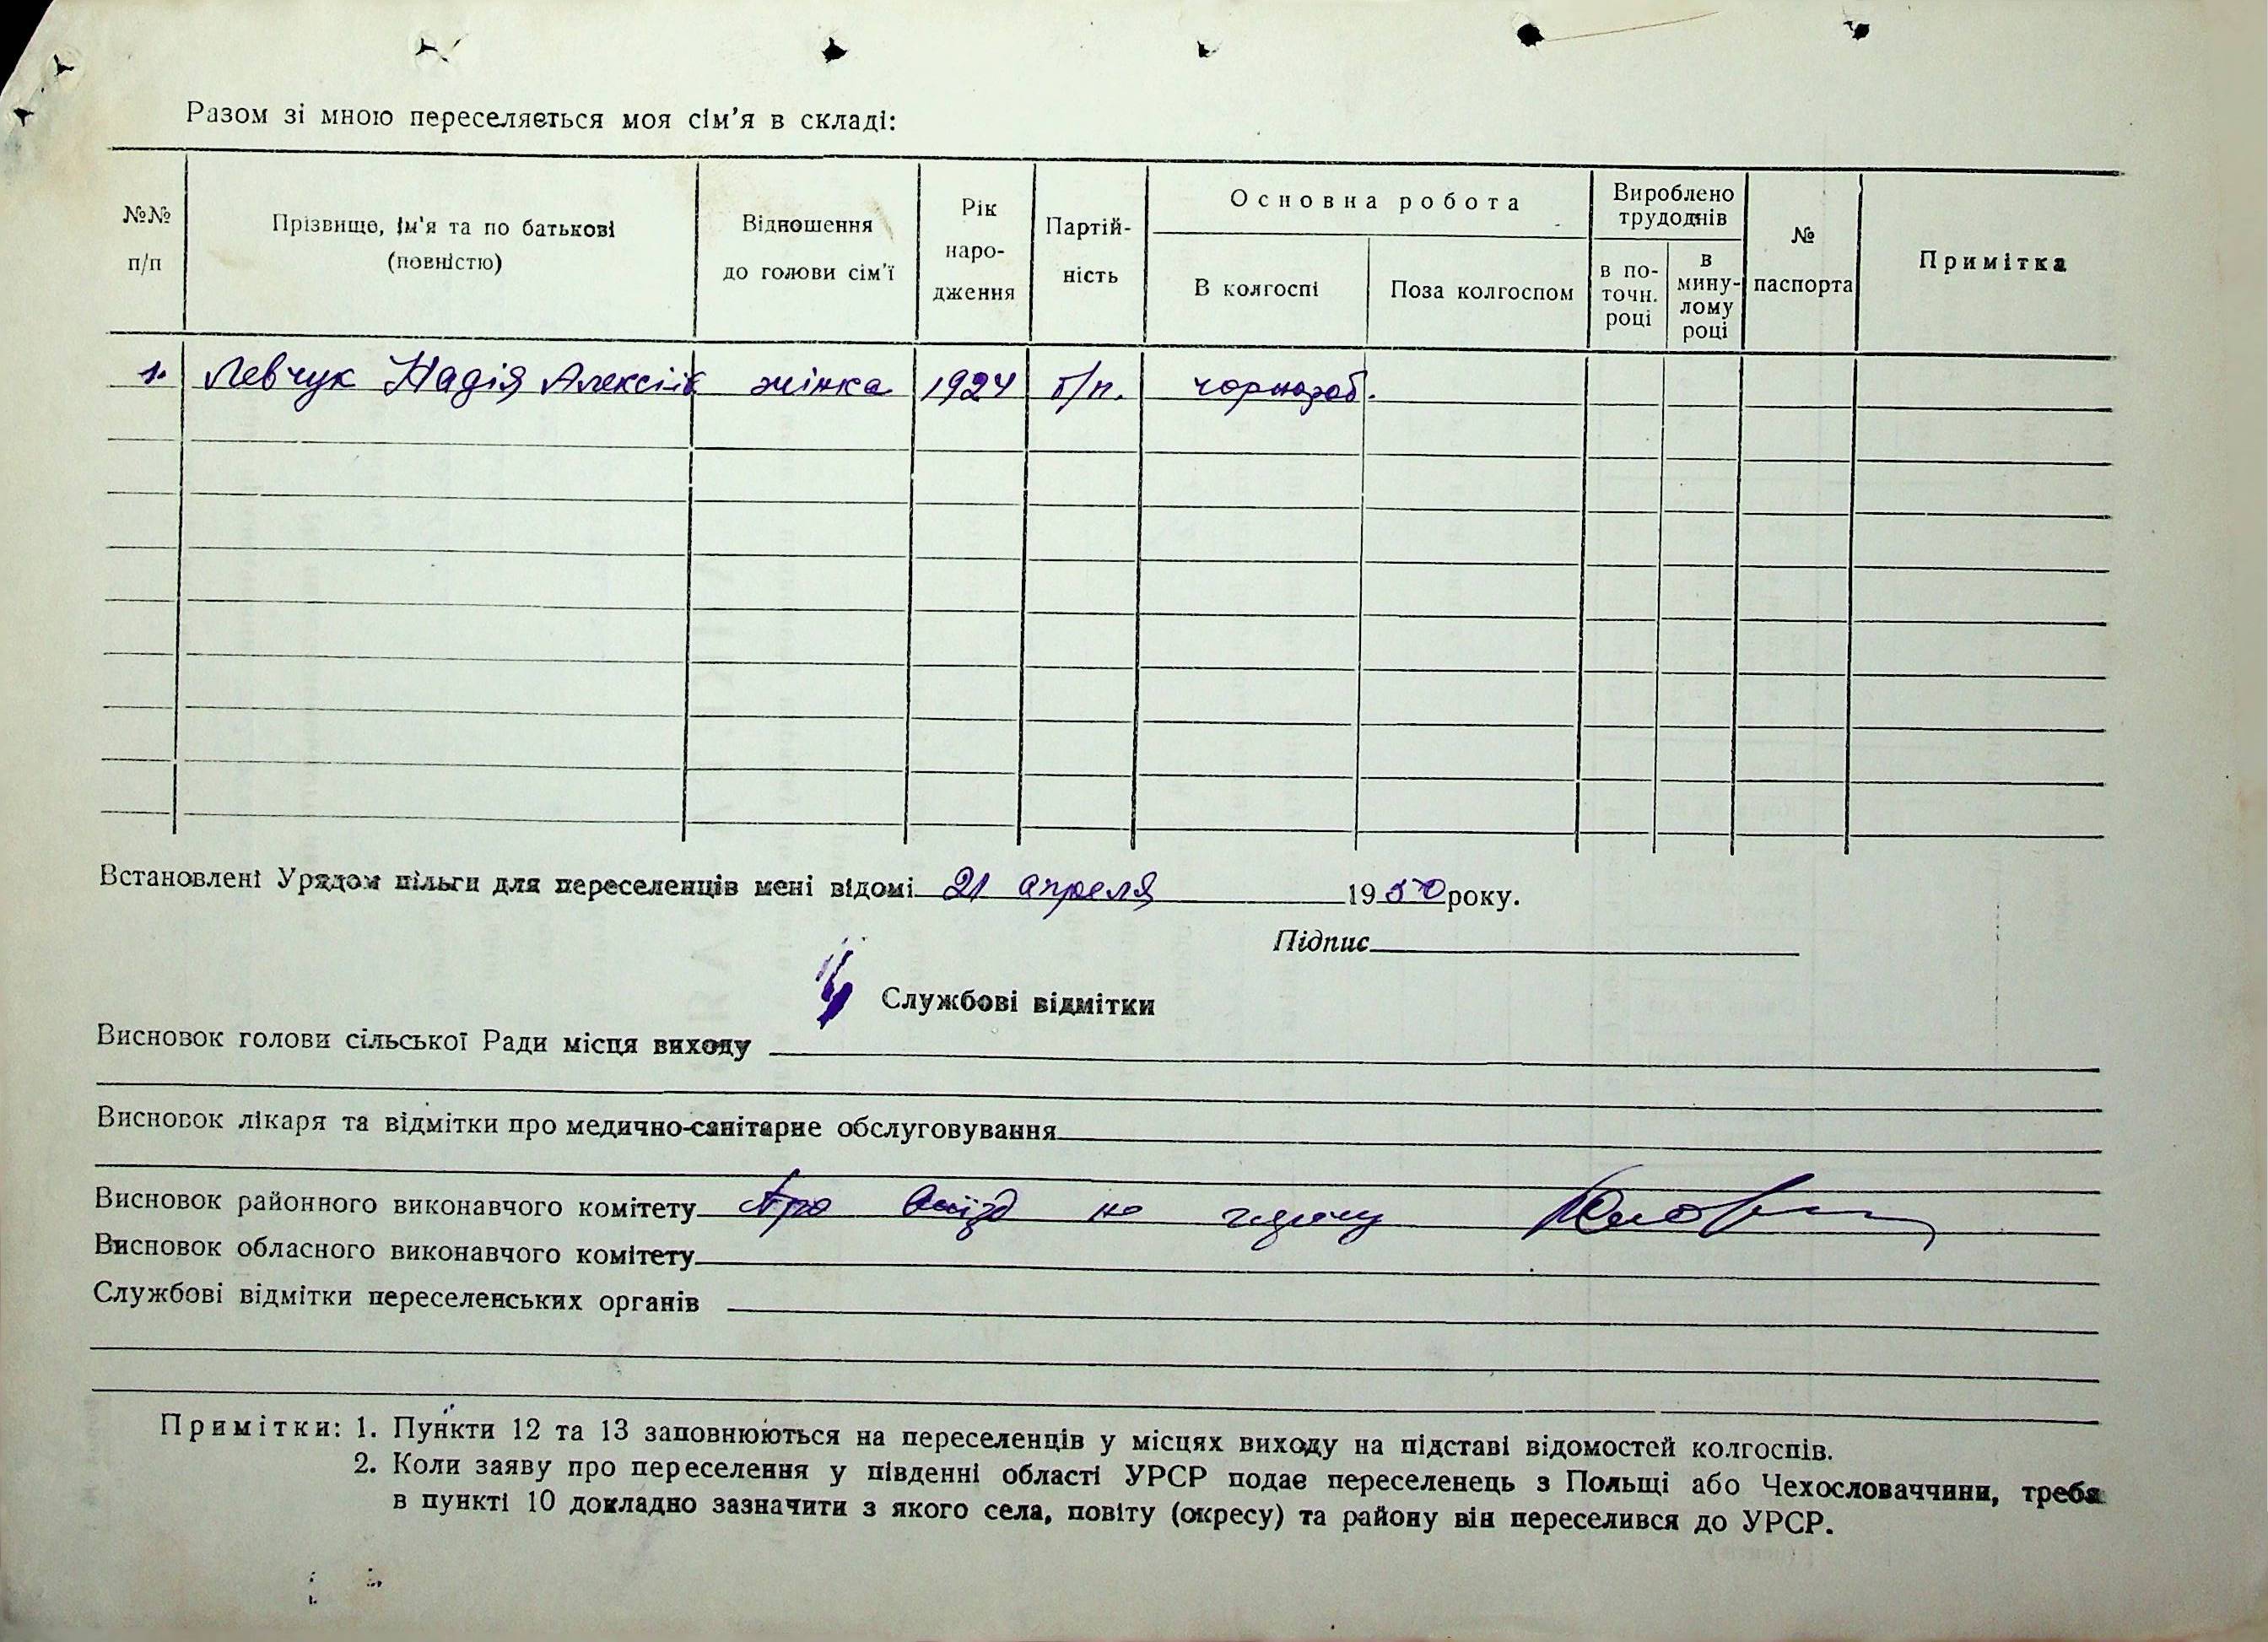 Разом зі мною переселяється моя сім'я в складі:
№№ п/п
Прізвище, ім'я та по батькові (повністю)
Відношення до голови сім'ї
Рік наро-дження
Партій-ність
Основна робота
В колгоспі
Поза колгоспом
Вироблено трудоднів
в по-точн. році
в мину-лому році
№ паспорта
Примітка
1. Левчук Надія Алексіїв жінка 1924 б/п. чорнороб.
Встановлені Урядом пільги для переселенців мені відомі 21 апреля 1950 року.
Підпис
Службові відмітки
Висновок голови сільської Ради місця виходу
Висновок лікаря та відмітки про медично-санітарне обслуговування
Висновок районного виконавчого комітету Про виїзд не
Висновок обласного виконавчого комітету
Службові відмітки переселенських органів
Примітки: 1. Пункти 12 та 13 заповнюються на переселенців у місцях виходу на підставі відомостей колгоспів.
2. Коли заяву про переселення у південні області УРСР подає переселенець з Польщі або Чехословаччини, треба
в пункті 10 докладно зазначити з якого села, повіту (окресу) та району він переселився до УРСР.